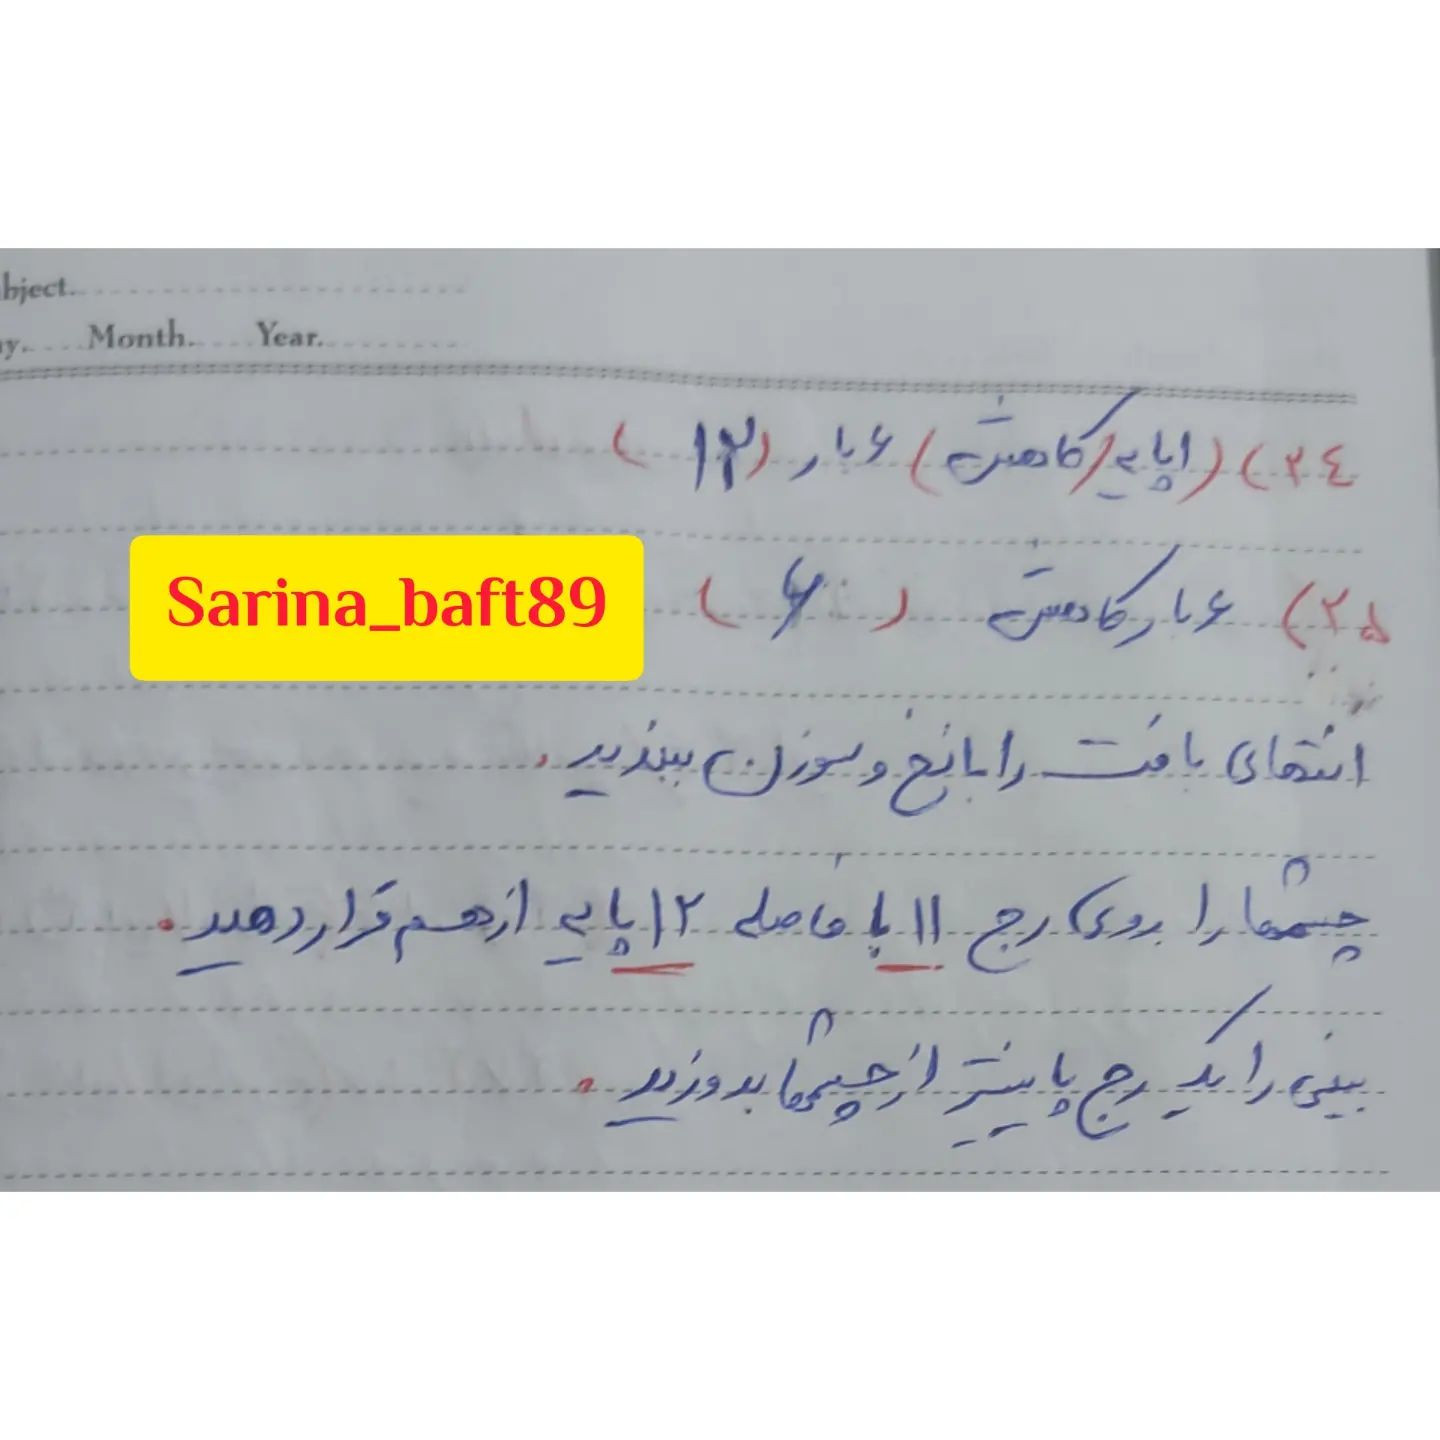 bject.
ay. Month. Year.
۲٤) (۱پایه/کاهش) ۶ بار (۱۲)
۲۵) ۶ بار کاهش (۶)
Sarina_baft89
انتهای بافت را با نخ و سوزن ببندید.
چشمها را روی رج ۱۱ با فاصله ۱۲ پایه از هم قرار دهید.
بینی را یک رج پایینتر از چشمها بدوزید.